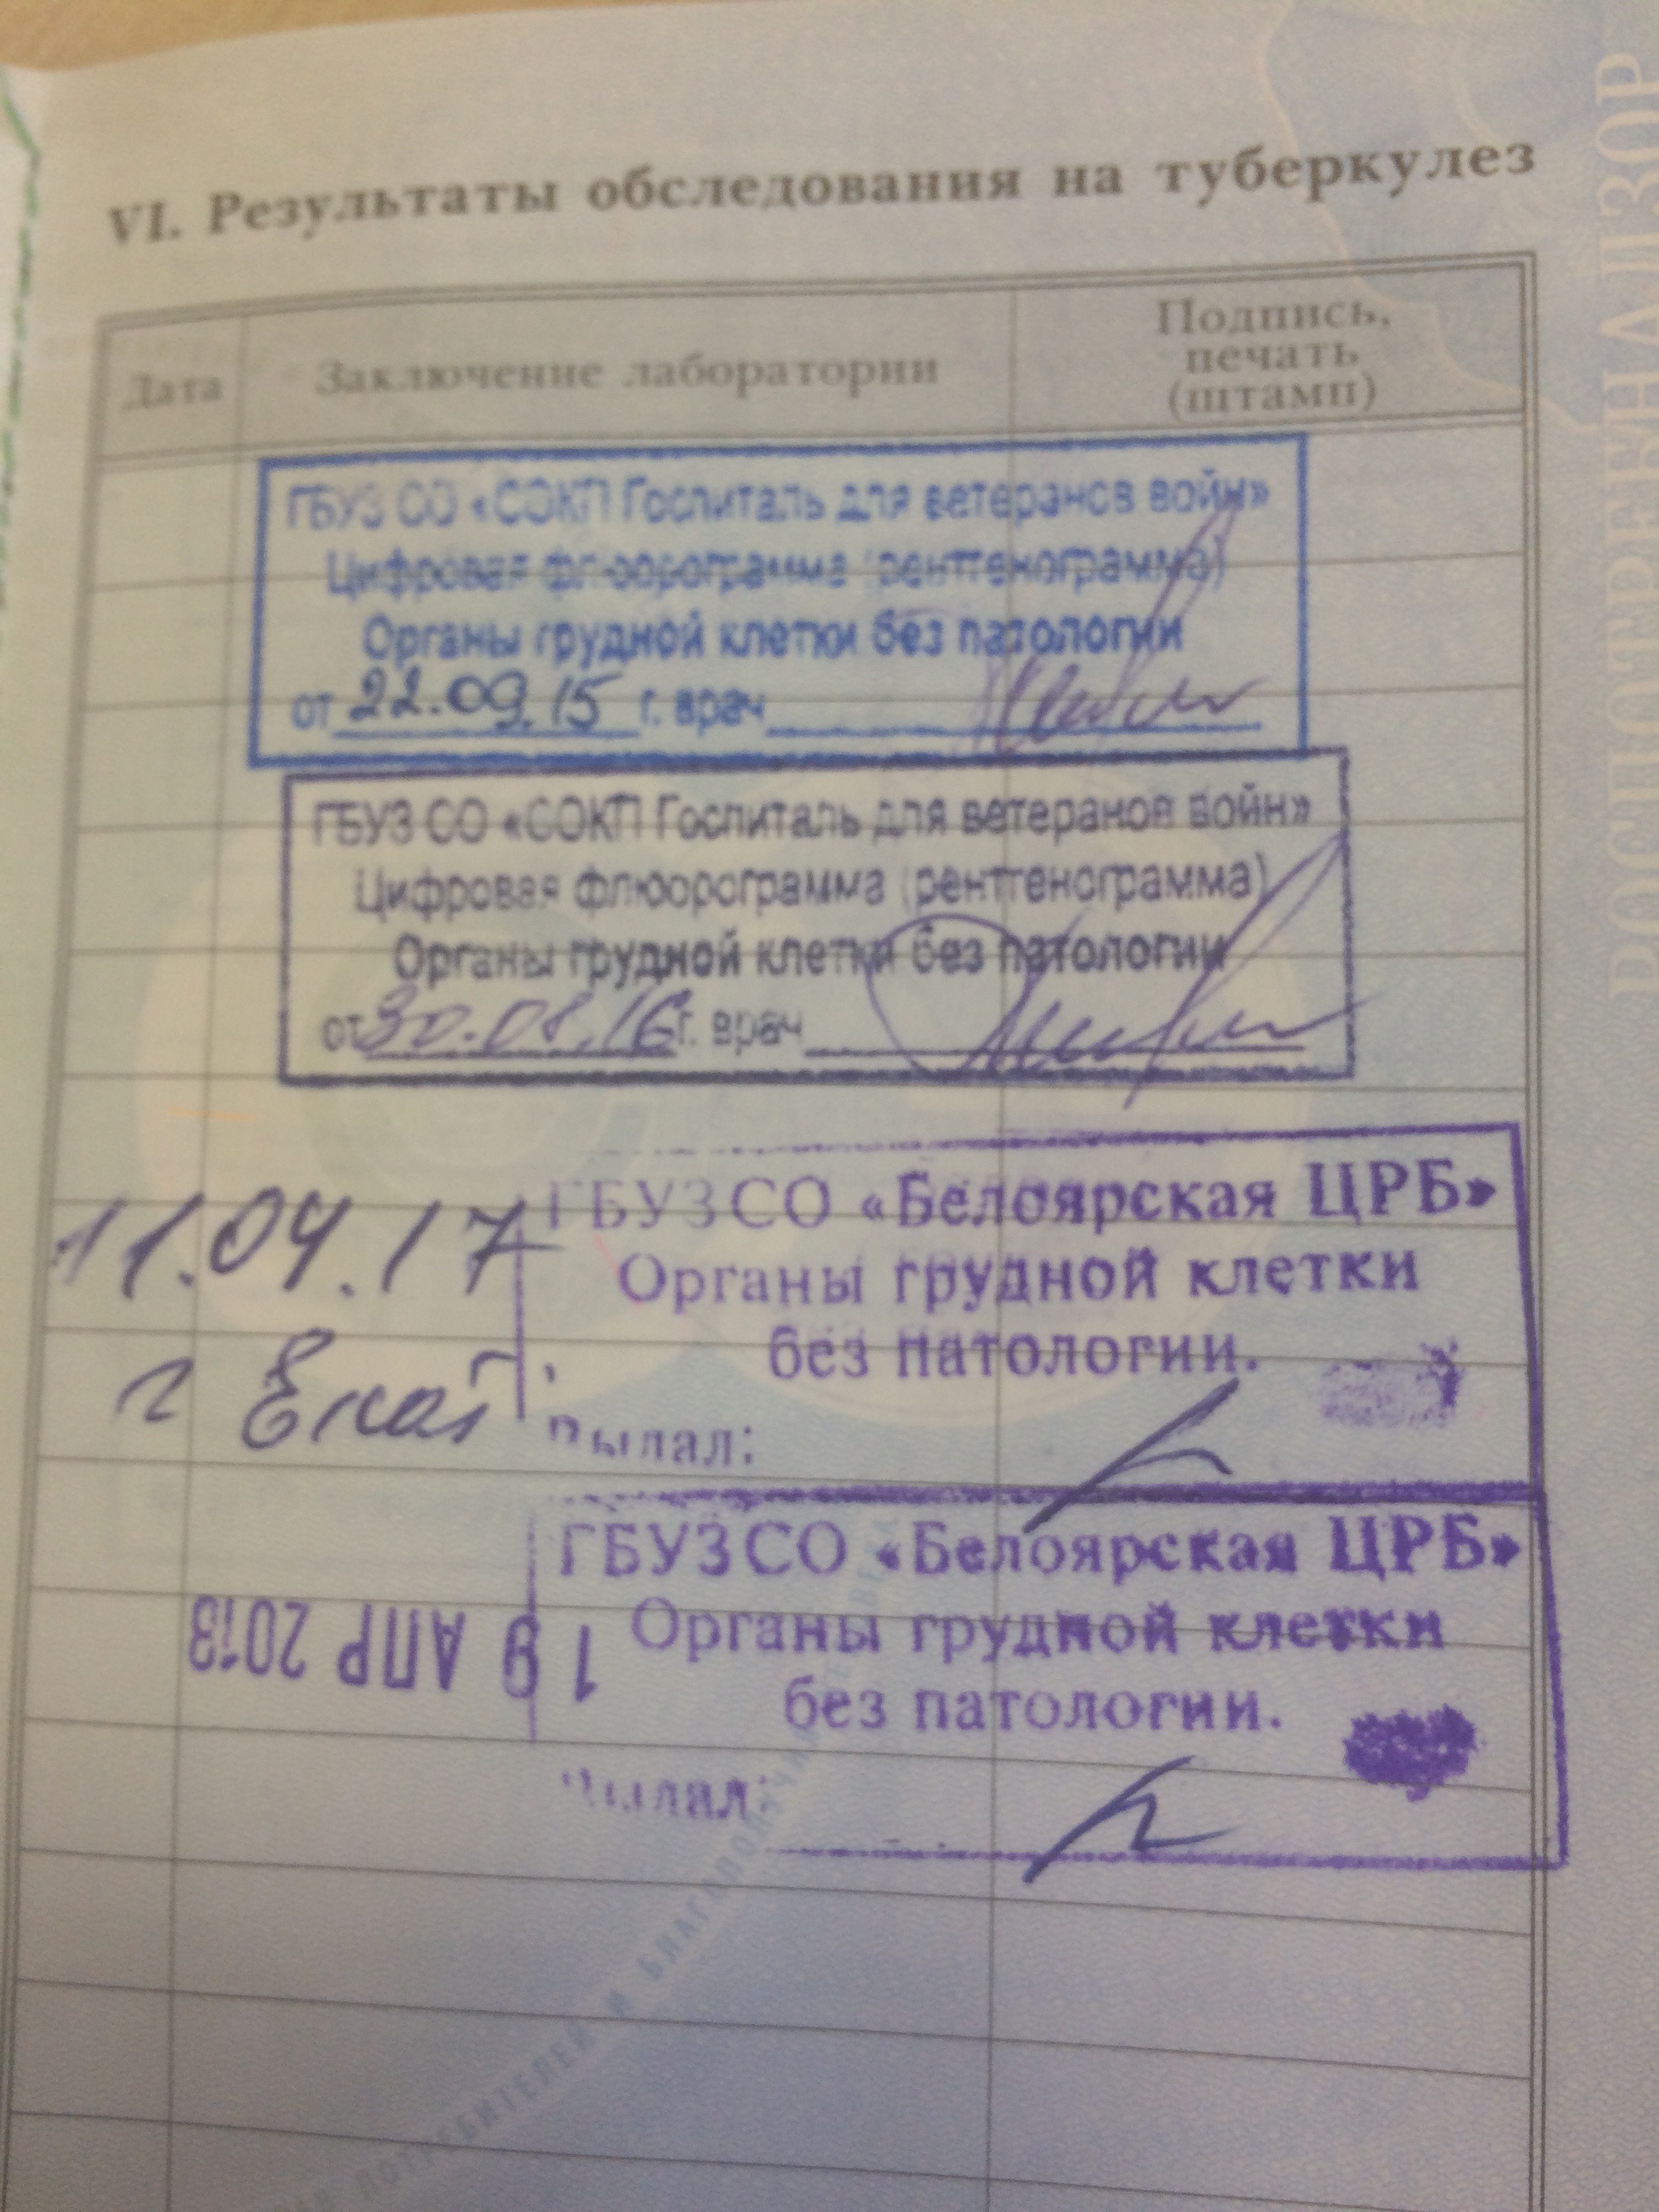 VI. Результаты обследования на туберкулез
Дата
Заключение лаборатории
Подпись,
печать
(штамп)
ГБУЗ СО «СОКП Госпиталь для ветеранов войн»
Цифровая флюорограмма (рентгенограмма)
Органы грудной клетки без патологии
от 22.09.15 г. врач
ГБУЗ СО «СОКП Госпиталь для ветеранов войн»
Цифровая флюорограмма (рентгенограмма)
Органы грудной клетки без патологии
от 30.08.16 г. врач
11.04.17
г Екат
ГБУЗ СО «Белоярская ЦРБ»
Органы грудной клетки
без патологии.
ГБУЗ СО «Белоярская ЦРБ»
Органы грудной клетки
без патологии.
19 АПР 2018
РОСПОТРЕБНАДЗОР
ПОТРЕБИТЕЛЕЙ И БЛАГОПОЛУЧИЯ